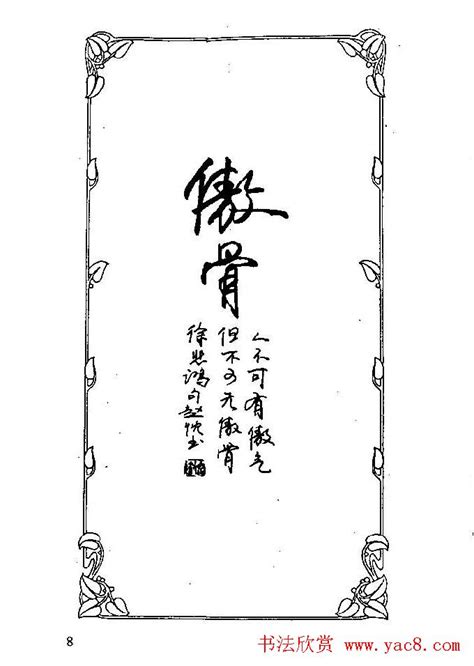 傲
骨
人不可有傲气
但不可无傲骨
徐悲鸿句赵书
8
书法欣赏 www.yac8.com